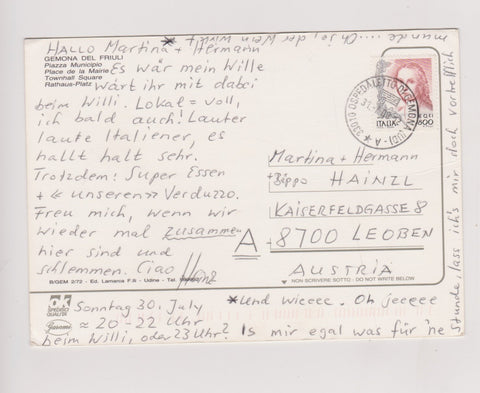 HALLO Martina + Hermann
GEMONA DEL FRIULI
Piazza Municipio
Place de la Mairie
Townhall Square
Rathaus-Platz
* Es wär mein Wille
wärt ihr mit dabei
beim Willi. Lokal = voll,
ich bald auch! Lauter
laute Italiener, es
hallt halt sehr.
Trotzdem: Super Essen
+ « unseren » Verduzzo.
Freu mich, wenn wir
wieder mal zusammen
hier sind und
schlemmen. Ciao
B/GEM 2/72 - Ed. Lamarca F.lli - Udine - Tel.
OK
SPECIALE
QUALITÀ
Sonntag 30. July
≈ 20-22 Uhr
beim Willi, oder 23 Uhr?
*Und wieeee. Oh jeeeee
Is mir egal was für 'ne
Stunde, lass ich's mir doch vortrefflich
munde .... Oh je, der Wein wirkt
33010 OSPEDALETTO DI GEMONA (UD) - A
ITALIA
800
Martina + Hermann
+ Beppo HAINZL
KAISERFELDGASSE 8
A - 8700 LEOBEN
AUSTRIA
NON SCRIVERE SOTTO - DO NOT WRITE BELOW